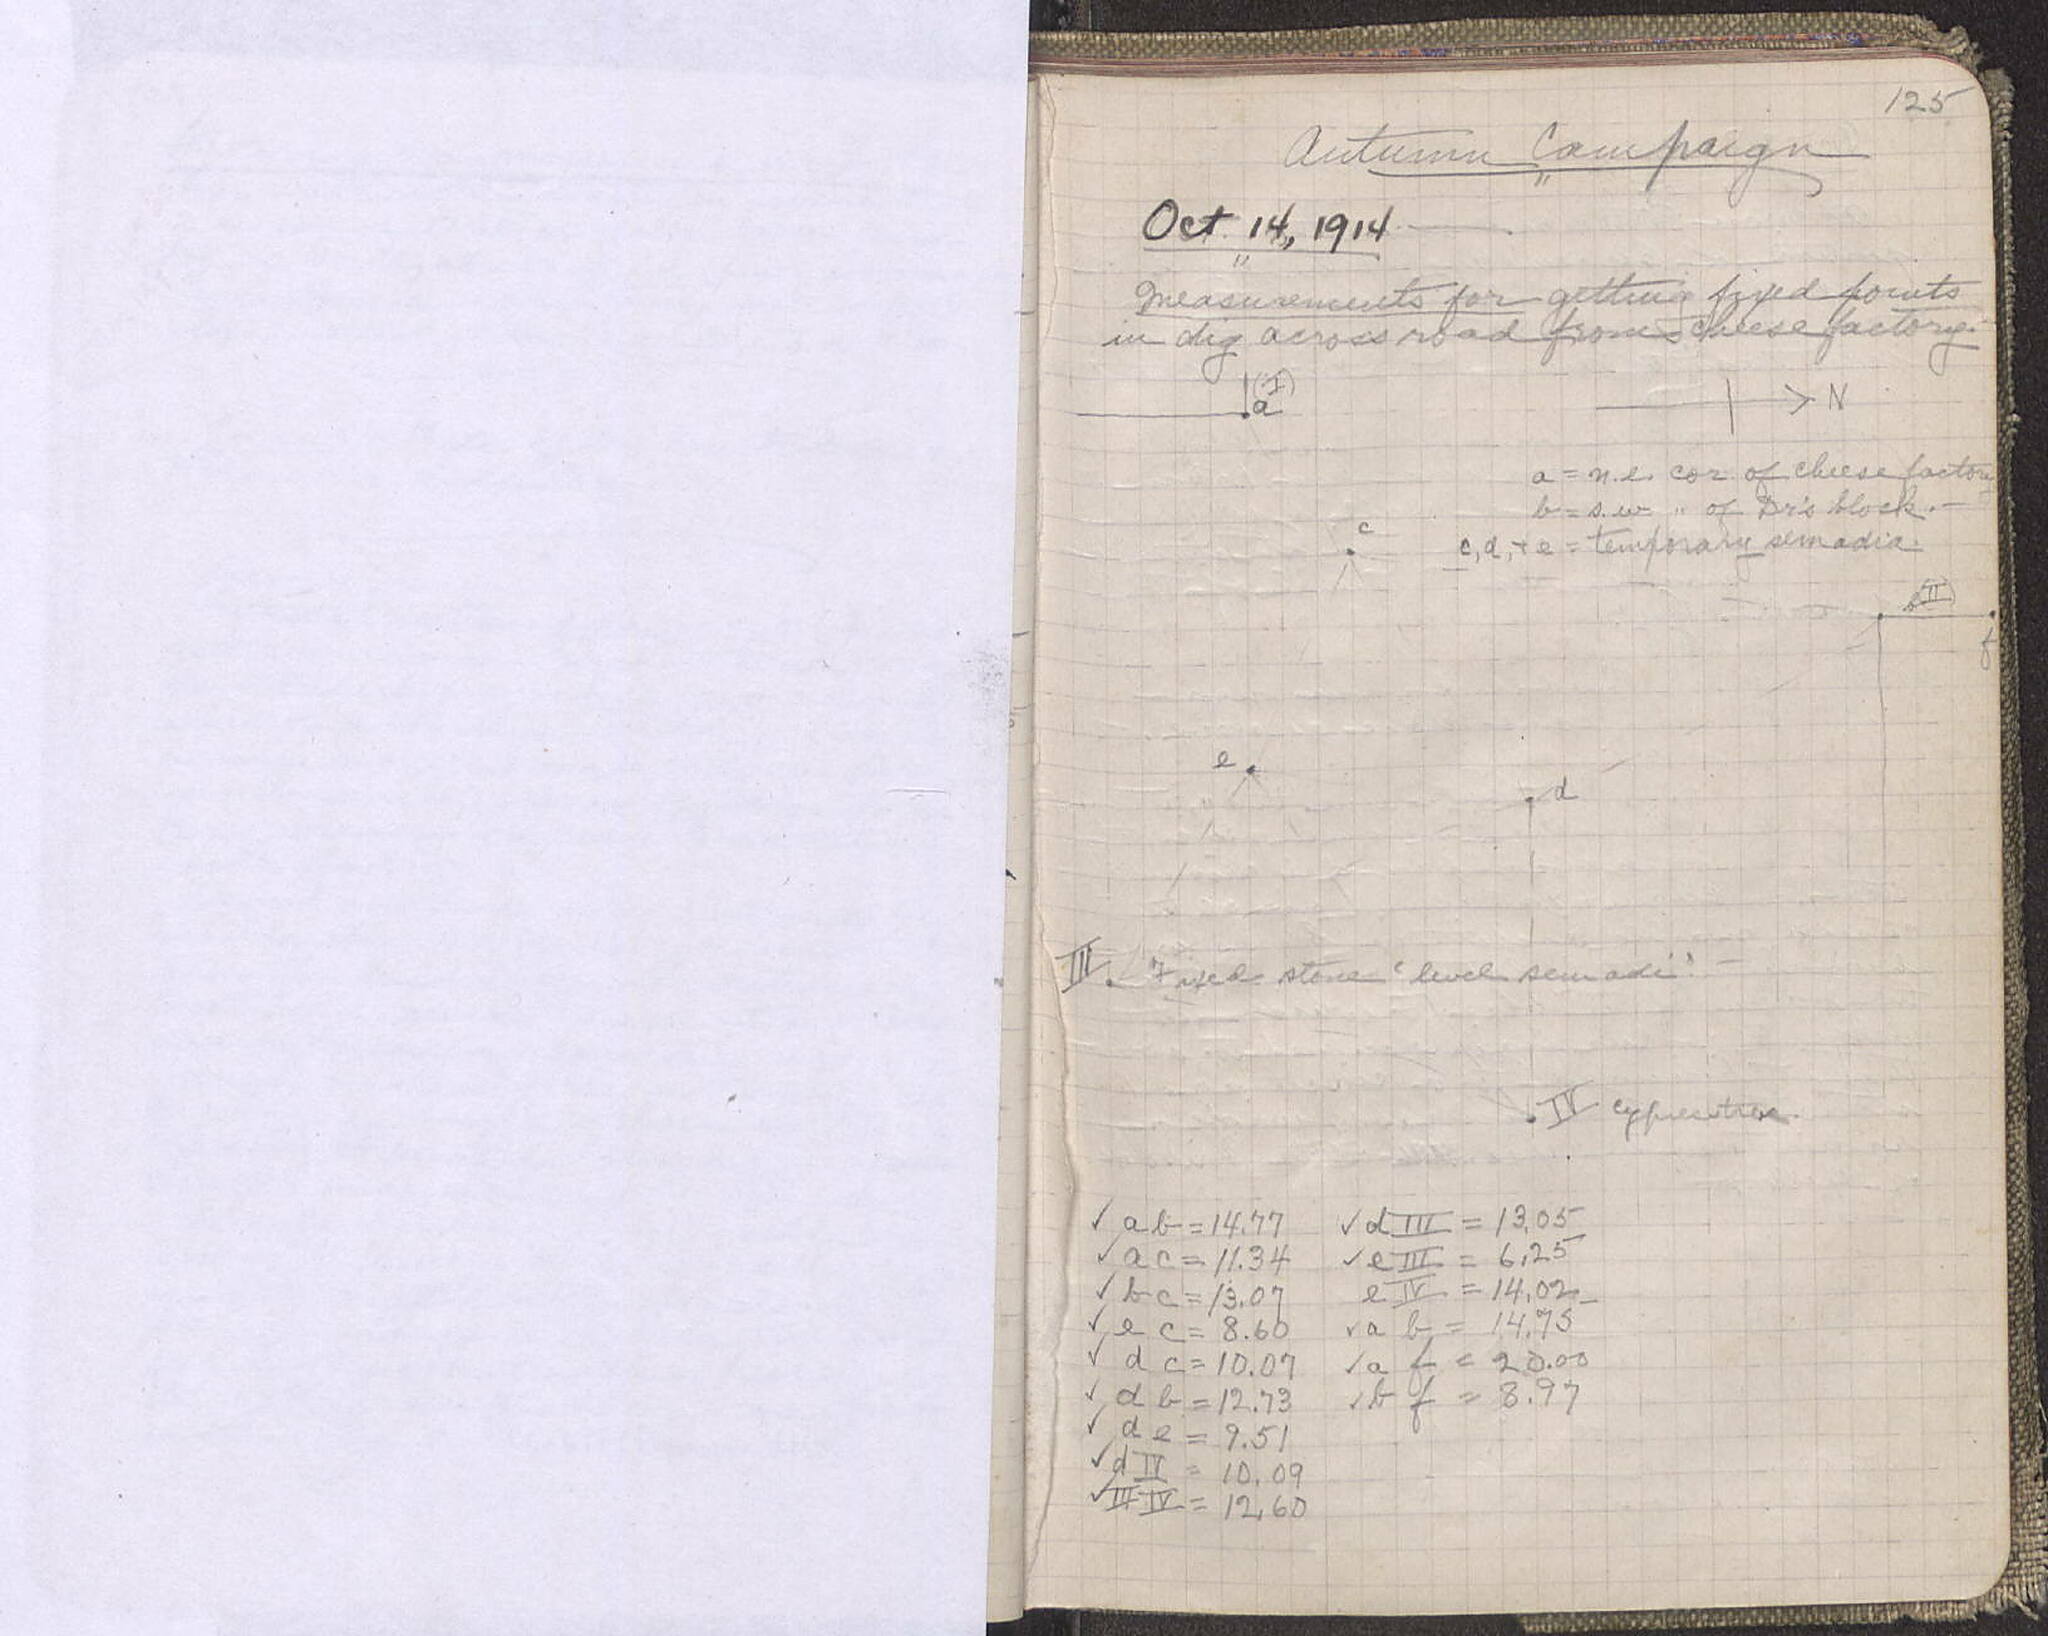 125
Autumn Campaign
Oct. 14, 1914
Measurements for getting fixed points
in dig across road from cheese factory.
(I)
a
N
a = n.e. cor. of cheese factory
b = s.w. " of Dr's block.
c, d, + e = temporary semadia.
c
b (II)
f
e
d
III. Fixed stone 'level semadi'.
IV cypress tree.
✓ a b = 14.77
✓ a c = 11.34
✓ b c = 13.07
✓ e c = 8.60
✓ d c = 10.07
✓ d b = 12.73
✓ d e = 9.51
✓ d IV = 10.09
✓ III IV = 12.60
✓ d III = 13.05
✓ e III = 6.25
e IV = 14.02
✓ a b = 14.75
✓ a f = 20.00
✓ b f = 8.97